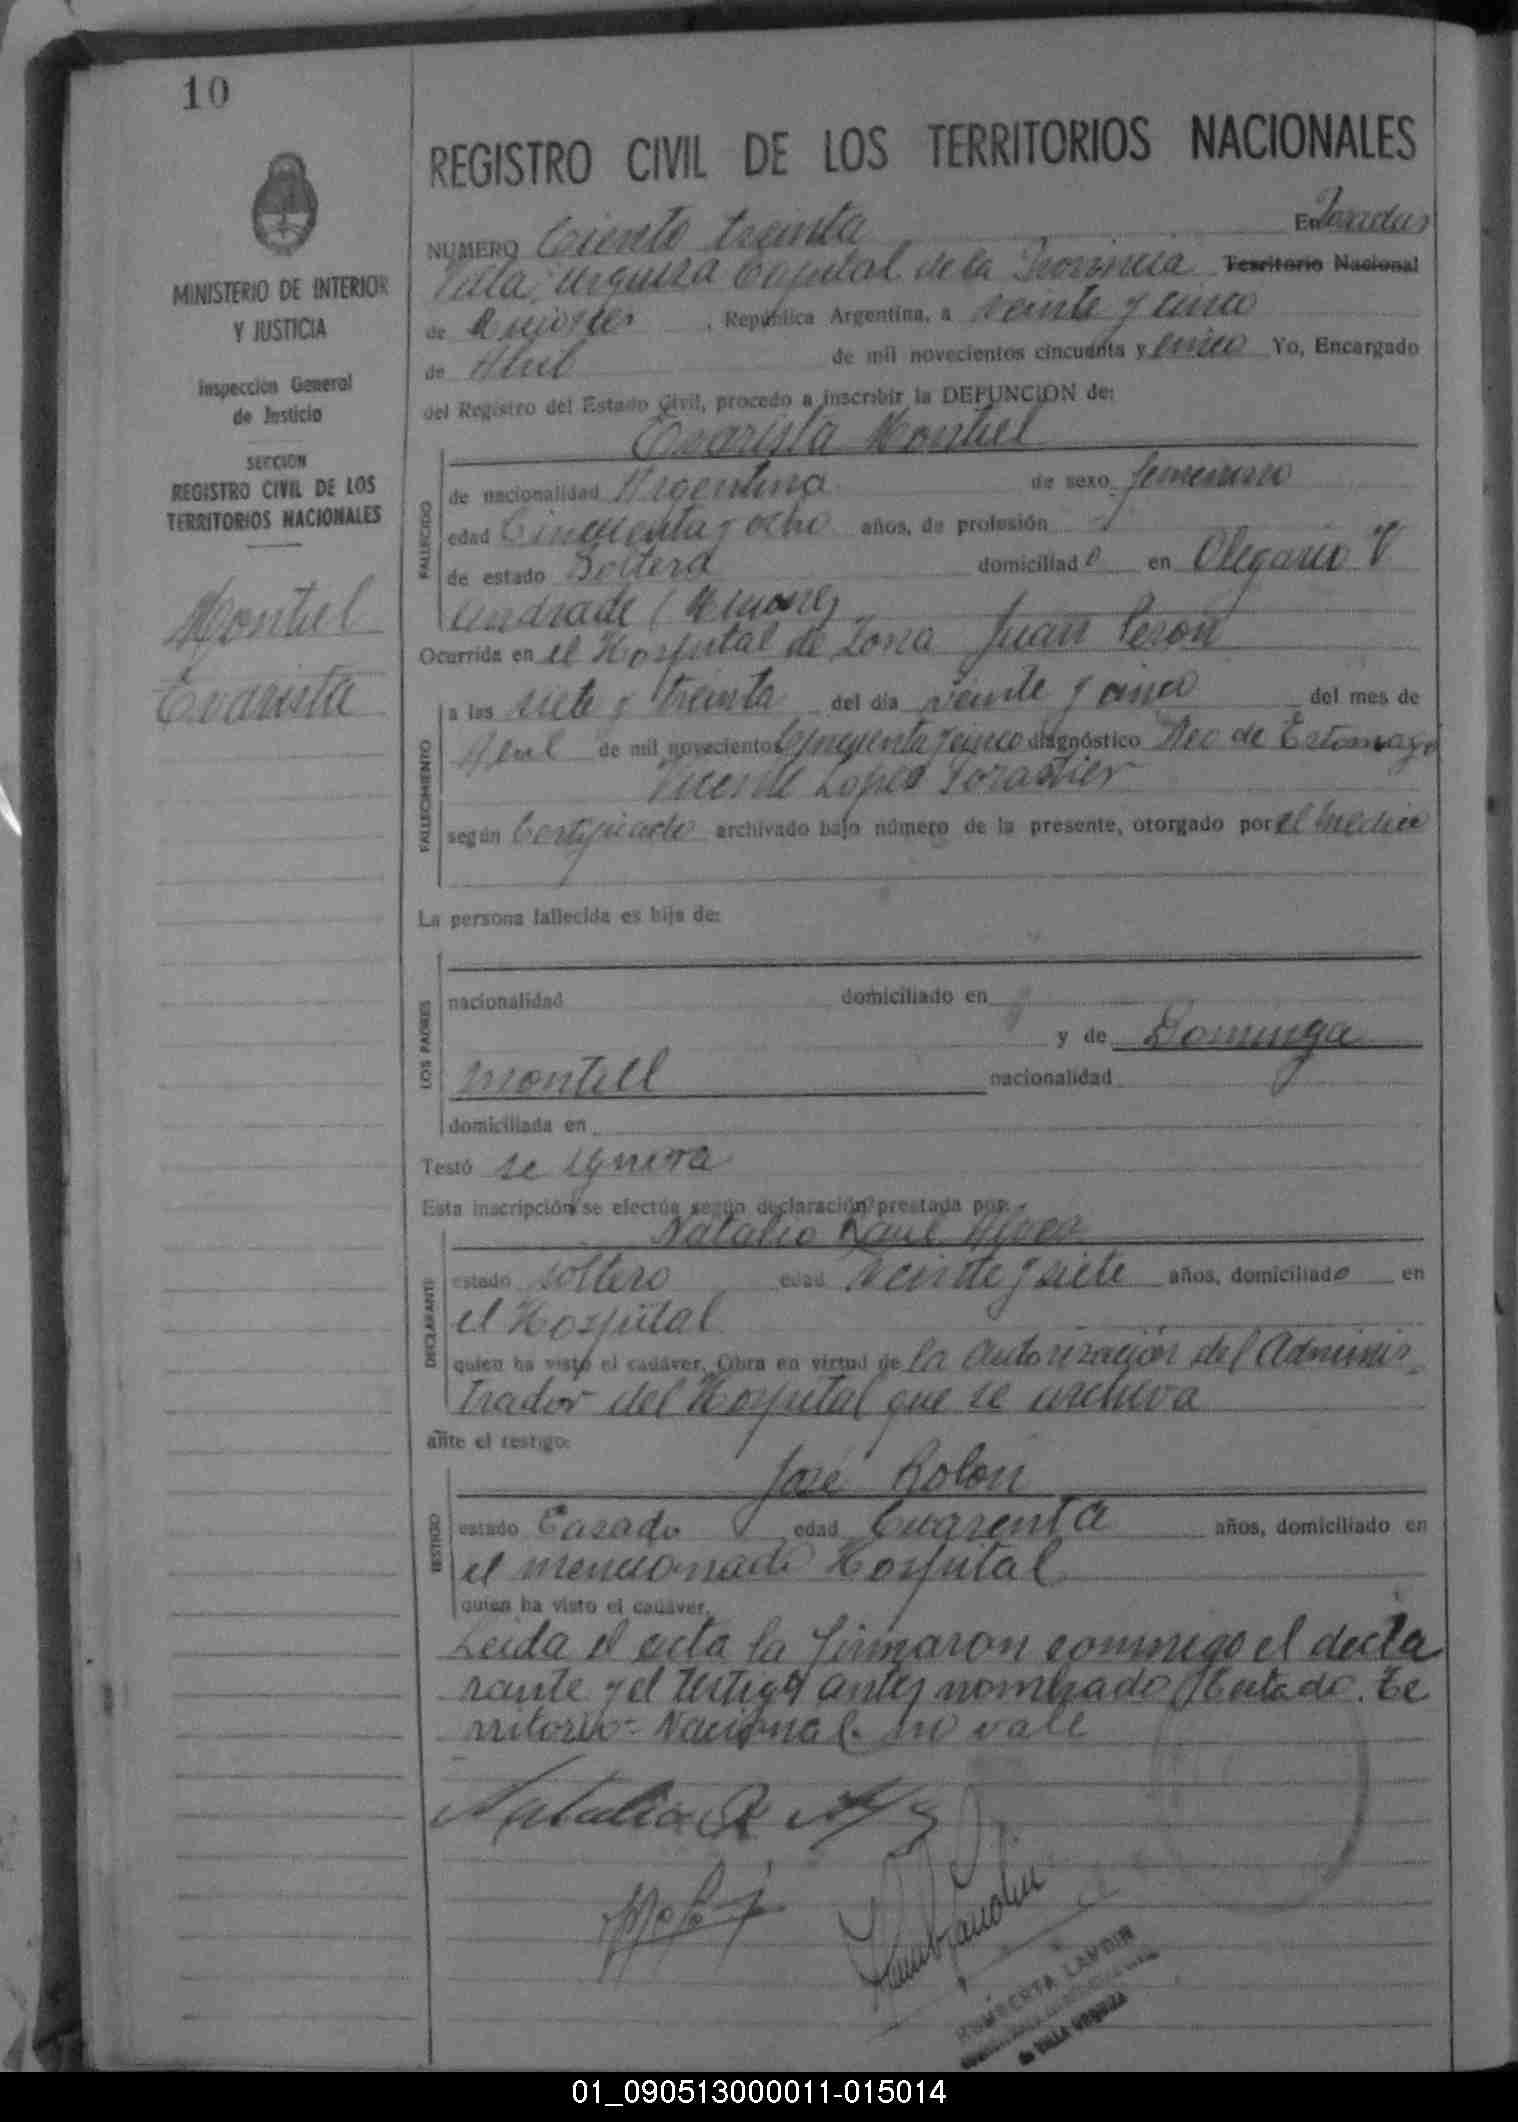 10
MINISTERIO DE INTERIOR
Y JUSTICIA
Inspección General
de Justicia
SECCION
REGISTRO CIVIL DE LOS
TERRITORIOS NACIONALES
Montiel
Evarista
REGISTRO CIVIL DE LOS TERRITORIOS NACIONALES
NUMERO Ciento treinta En Posadas
Villa Urquiza Capital de la Provincia Territorio Nacional
de Misiones, República Argentina, a veinte y cinco
de Abril de mil novecientos cincuenta y cinco Yo, Encargado
del Registro del Estado Civil, procedo a inscribir la DEFUNCION de:
Evarista Montiel
FALLECIDO
de nacionalidad Argentina de sexo femenino
edad Cincuenta y ocho años, de profesión
de estado Soltera domiciliad o en Olegario V
Andrade (Misiones
Ocurrida en el Hospital de Zona Juan Peron
FALLECIMIENTO
a las siete y treinta del día veinte y cinco del mes de
Abril de mil novecientos Cincuenta y cinco diagnóstico Neo de Estomago
Vicente Lopez Forastier
según Certificado archivado bajo número de la presente, otorgado por el medico
La persona fallecida es hija de:
LOS PADRES
nacionalidad domiciliado en
y de Dominga
Montiel nacionalidad
domiciliada en
Testó se ignora
Esta inscripción se efectúa según declaración prestada por:
Natalio Raul
DECLARANTE
estado soltero edad veinte y siete años, domiciliado en
el Hospital
quien ha visto el cadáver. Obra en virtud de la autorización del Adminis-
trador del Hospital que se archiva
ante el testigo:
José Rolon
TESTIGO
estado Casado edad Cuarenta años, domiciliado en
el mencionado Hospital
quien ha visto el cadáver.
Leida el acta la firmaron conmigo el decla
rante y el testigo antes nombrado Testado. Te
rritorio = Nacional. no vale
Natalio R
HUMBERTA LANDIN
de VILLA URQUIZA
01_090513000011-015014